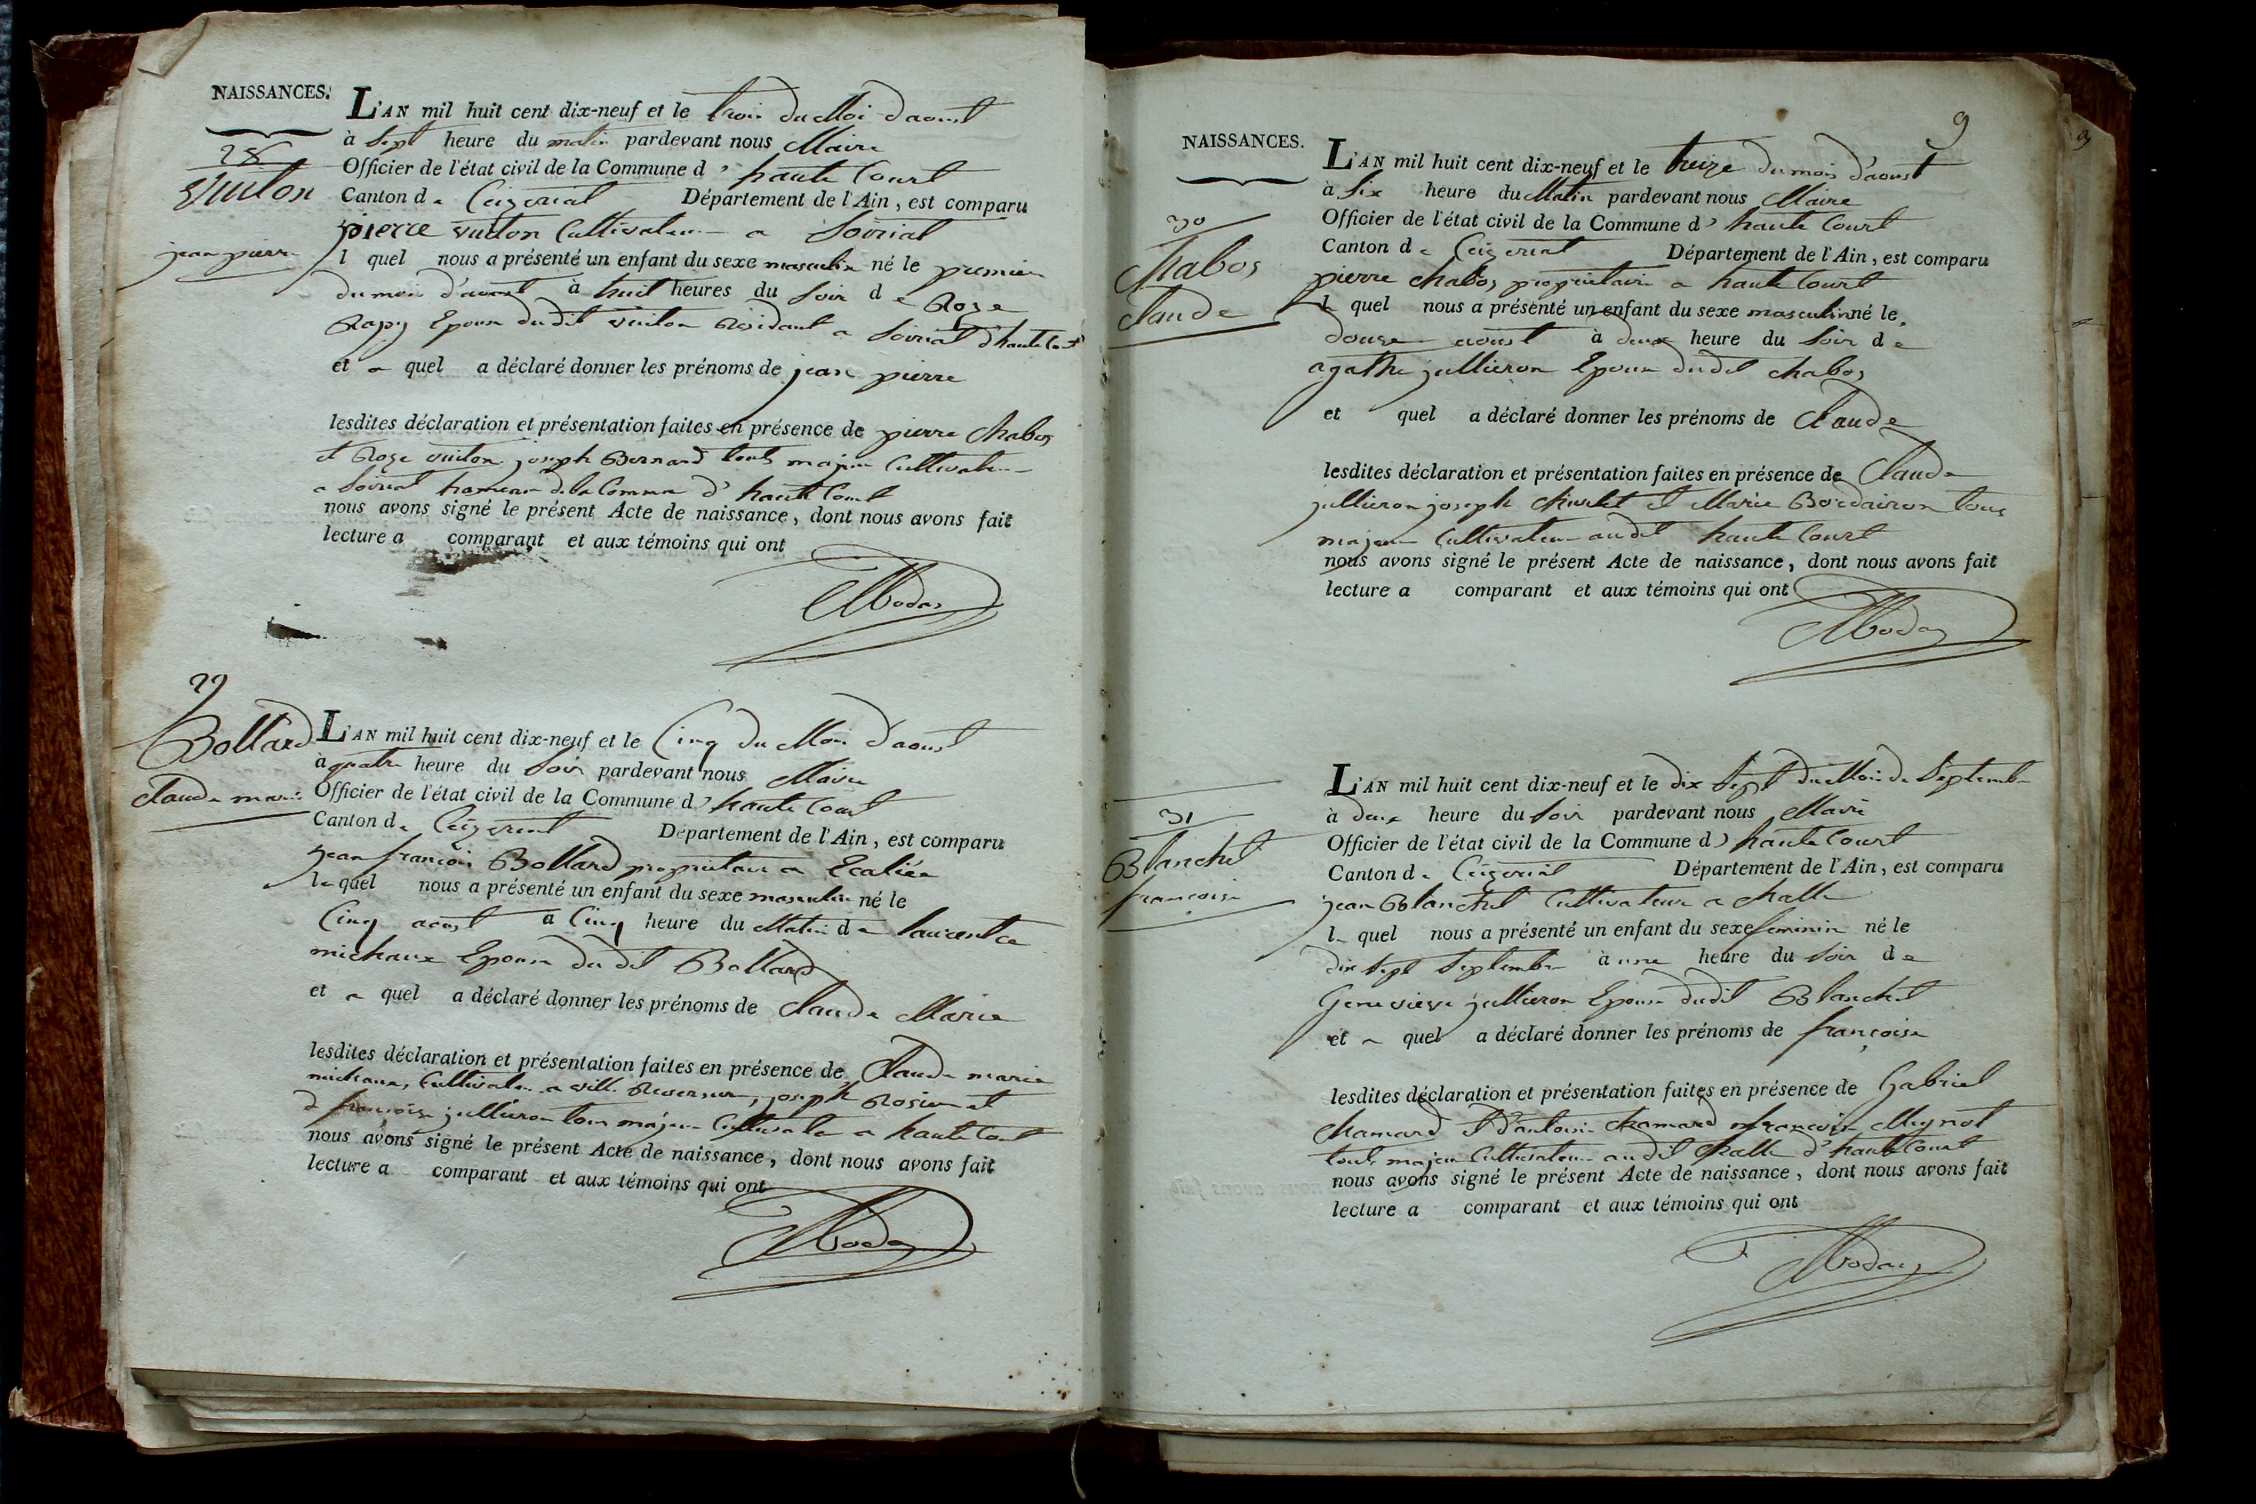 NAISSANCES.
28
Vuiton
jean pierre
L'AN mil huit cent dix-neuf et le trois du Moi d'aoust
à sept heure du matin pardevant nous Maire
Officier de l'état civil de la Commune d' haute Court
Canton de Ceizeriat Département de l'Ain, est comparu
pierre vuiton Cultivateur a Sousiat
l quel nous a présenté un enfant du sexe masculin né le premier
du mois d'aoust à huit heures du soir de Roze
Epouse du dit vuiton Résidant a d'haute Court
et a quel a déclaré donner les prénoms de jean pierre
lesdites déclaration et présentation faites en présence de pierre Chabos
et Roze vuiton joseph Bernard touts majeur Cultivateur
a hameau de la Commune d' haute Court
nous avons signé le présent Acte de naissance, dont nous avons fait
lecture a comparant et aux témoins qui ont
29
Bollard
Claude marie
L'AN mil huit cent dix-neuf et le Cinq du Moi d'aoust
à quatre heure du soir pardevant nous Maire
Officier de l'état civil de la Commune d' haute Court
Canton de Ceizeriat Département de l'Ain, est comparu
jean françois Bollard propriétaire a
le quel nous a présenté un enfant du sexe masculin né le
Cinq aoust à Cinq heure du Matin de
michaux Epouse du dit Bollard
et a quel a déclaré donner les prénoms de Claude Marie
lesdites déclaration et présentation faites en présence de Claude marie
michaux, Cultivateur a ville Reversure, joseph
françoise jullieron tous majeur Cultivateur a haute Court
nous avons signé le présent Acte de naissance, dont nous avons fait
lecture a comparant et aux témoins qui ont
9
NAISSANCES.
30
Chabos
Claude
L'AN mil huit cent dix-neuf et le treize du mois d'aoust
à six heure du Matin pardevant nous Maire
Officier de l'état civil de la Commune d' haute Court
Canton de Ceizeriat Département de l'Ain, est comparu
pierre Chabos propriétaire a haute Court
le quel nous a présenté un enfant du sexe masculin né le
douze aoust à deux heure du soir de
agathe jullieron Epouse du dit Chabos
et quel a déclaré donner les prénoms de Claude
lesdites déclaration et présentation faites en présence de Claude
jullieron joseph et Marie tous
majeur Cultivateur audit haute Court
nous avons signé le présent Acte de naissance, dont nous avons fait
lecture a comparant et aux témoins qui ont
31
Blanchet
françoise
L'AN mil huit cent dix-neuf et le dix sept du Moi de Septembre
à deux heure du soir pardevant nous Maire
Officier de l'état civil de la Commune d' haute Court
Canton de Ceizeriat Département de l'Ain, est comparu
jean Blanchet Cultivateur a Challe
le quel nous a présenté un enfant du sexe feminin né le
dix sept Septembre à une heure du soir de
Genevieve jullieron Epouse dudit Blanchet
et a quel a déclaré donner les prénoms de françoise
lesdites déclaration et présentation faites en présence de Gabriel
Chamard et d'antoine Chamard françois Mignot
touts majeur Cultivateur audit Challe d'haute Court
nous avons signé le présent Acte de naissance, dont nous avons fait
lecture a comparant et aux témoins qui ont